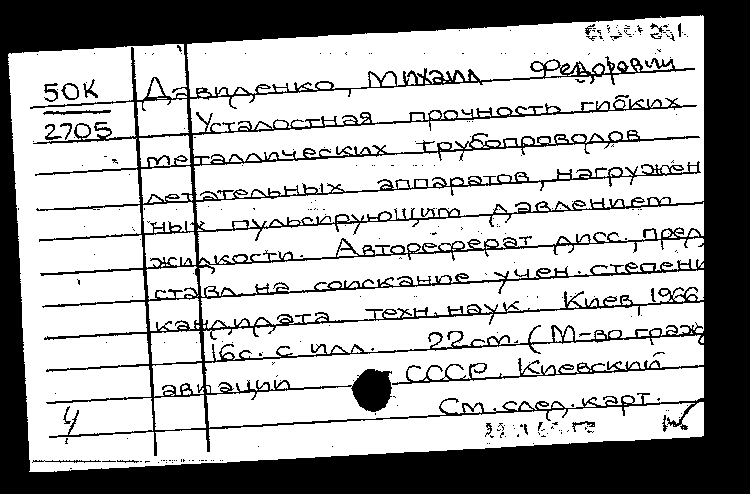 50К Давиденко, Михаил Федорович
2705 Усталостная прочность гибких
металлических трубопроводов
летательных аппаратов, нагружен
ных пульсирующим давлением
жидкости. Автореферат дисс., пред
ставл. на соискание учен. степени
кандидата техн. наук. Киев, 1966
16с. с илл. 22см. (М-во граж
авиации СССР. Киевский
См. след. карт.